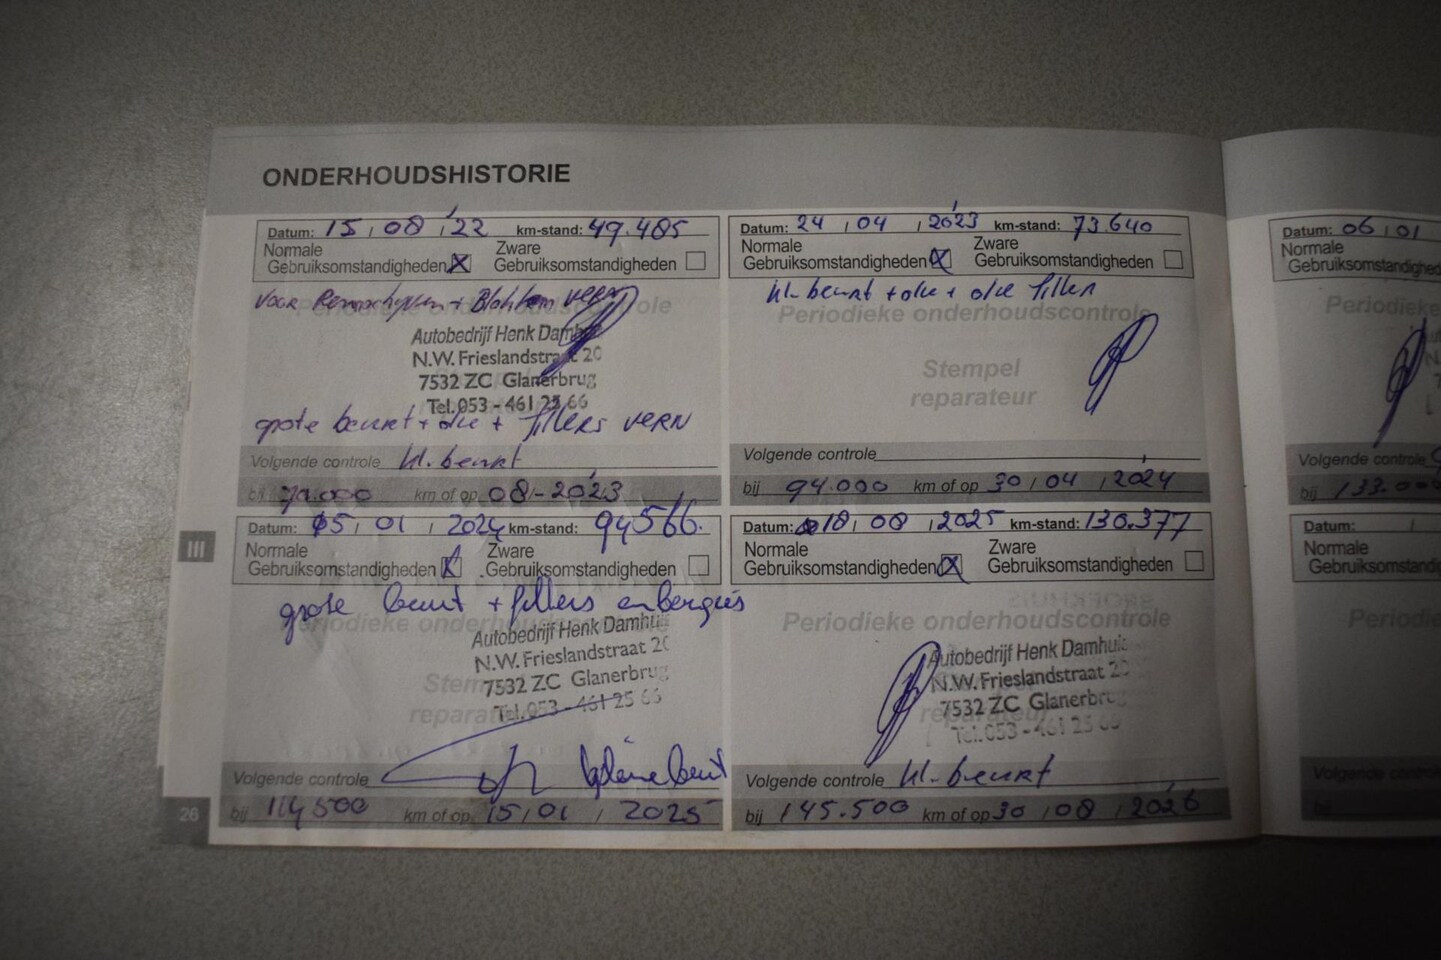 ONDERHOUDSHISTORIE
Datum: 15 / 08 / '22 km-stand: 49.485
Normale
Gebruiksomstandigheden
Zware
Gebruiksomstandigheden
voor Remschijven + Blokken vern
Periodieke onderhoudscontrole
Autobedrijf Henk Damh
N.W. Frieslandstraat 20
7532 ZC Glanerbrug
Tel. 053 - 461 25 66
grote beurt + olie + filters VERN
Volgende controle kl. beurt
bij 70.000 km of op 08 - 2023
Datum: 24 / 04 / 2023 km-stand: 73.640
Normale
Gebruiksomstandigheden
Zware
Gebruiksomstandigheden
kl. beurt + olie + olie filter
Periodieke onderhoudscontrole
Stempel
reparateur
Volgende controle
bij 94.000 km of op 30 / 04 / 2024
III
Datum: 15 / 01 / 2024 km-stand: 94566.
Normale
Gebruiksomstandigheden
Zware
Gebruiksomstandigheden
grote beurt + filters
Periodieke onderhoudscontrole
Autobedrijf Henk Damhui
N.W. Frieslandstraat 20
7532 ZC Glanerbrug
Tel. 053 - 461 25 66
Stempel
reparateur
Volgende controle kleine beurt
bij 114500 km of op 15 / 01 / 2025
Datum: 18 / 08 / 2025 km-stand: 130.377
Normale
Gebruiksomstandigheden
Zware
Gebruiksomstandigheden
Periodieke onderhoudscontrole
Autobedrijf Henk Damhui
N.W. Frieslandstraat 20
7532 ZC Glanerbrug
Tel. 053 - 461 25 66
reparateur
Volgende controle kl. beurt
bij 145.500 km of op 30 / 08 / 2026
26
Datum: 06 / 01
Normale
Gebruiksomstandighed
Periodieke
Volgende controle
bij 133.000
Datum: /
Normale
Gebruiksomstandighed
Periodie
Volgende controle
bij